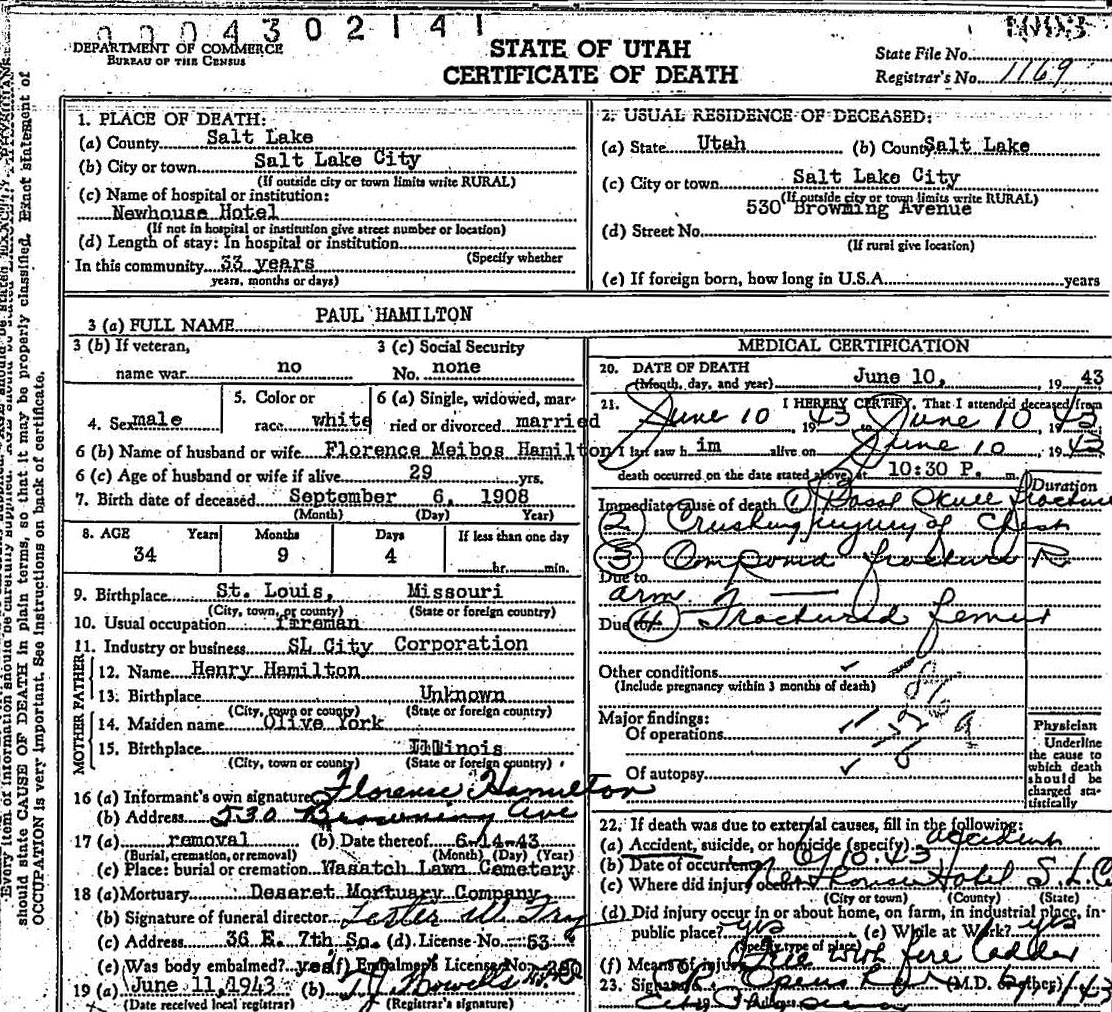 0004302141
DEPARTMENT OF COMMERCE
BUREAU OF THE CENSUS
STATE OF UTAH
CERTIFICATE OF DEATH
State File No.
Registrar's No. 1169
should state CAUSE OF DEATH in plain terms, so that it may be properly classified. Exact statement of
OCCUPATION is very important. See instructions on back of certificate.
1. PLACE OF DEATH:
(a) County Salt Lake
(b) City or town Salt Lake City
(If outside city or town limits write RURAL)
(c) Name of hospital or institution:
Newhouse Hotel
(If not in hospital or institution give street number or location)
(d) Length of stay: In hospital or institution
(Specify whether
In this community 33 years
years, months or days)
2. USUAL RESIDENCE OF DECEASED:
(a) State Utah (b) County Salt Lake
(c) City or town Salt Lake City
(If outside city or town limits write RURAL)
530 Browning Avenue
(d) Street No.
(If rural give location)
(e) If foreign born, how long in U.S.A. years
3 (a) FULL NAME PAUL HAMILTON
3 (b) If veteran,
name war no
3 (c) Social Security
No. none
4. Sex male
5. Color or
race white
6 (a) Single, widowed, mar-
ried or divorced married
6 (b) Name of husband or wife Florence Meibos Hamilton
6 (c) Age of husband or wife if alive 29 yrs.
7. Birth date of deceased September 6, 1908
(Month) (Day) Year)
8. AGE Years Months Days If less than one day
34 9 4 hr. min.
9. Birthplace St. Louis, Missouri
(City, town, or county) (State or foreign country)
10. Usual occupation fireman
11. Industry or business SL City Corporation
FATHER
12. Name Henry Hamilton
13. Birthplace Unknown
(City, town or county) (State or foreign country)
MOTHER
14. Maiden name Olive York
15. Birthplace Illinois
(City, town or county) (State or foreign country)
16 (a) Informant's own signature Florence Hamilton
(b) Address 530 Browning Ave
17 (a) removal (b) Date thereof 6-14-43
(Burial, cremation, or removal) (Month) (Day) (Year)
(c) Place: burial or cremation Wasatch Lawn Cemetery
18 (a) Mortuary Deseret Mortuary Company
(b) Signature of funeral director Lester
(c) Address 36 E. 7th So. (d) License No. 53
(e) Was body embalmed? yes (f) Embalmer's License No.
19 (a) June 11, 1943 (b)
(Date received local registrar) (Registrar's signature)
MEDICAL CERTIFICATION
20. DATE OF DEATH
(Month, day, and year) June 10, 19 43
21. I HEREBY CERTIFY, That I attended deceased from
June 10 19 43 to June 10 19 43
I last saw h im alive on June 10 19 43
death occurred on the date stated above at 10:30 P. m.
Duration
Immediate cause of death (1) Basal Skull fracture
(2) Crushing injury of Chest
(3) Compound fracture R
Due to
arm
Due to (4) Fractured femur
Other conditions
(Include pregnancy within 3 months of death)
Major findings:
Of operations
Of autopsy
Physician
Underline
the cause to
which death
should be
charged sta-
tistically
22. If death was due to external causes, fill in the following:
(a) Accident, suicide, or homicide (specify) accident
(b) Date of occurrence 6/10.43
(c) Where did injury occur? Newhouse Hotel S.L.C
(City or town) (County) (State)
(d) Did injury occur in or about home, on farm, in industrial place, in
public place? yes (e) While at Work? yes
(Specify type of place)
(f) Means of injury Fell with fire ladder
23. Signature (M.D. or other)